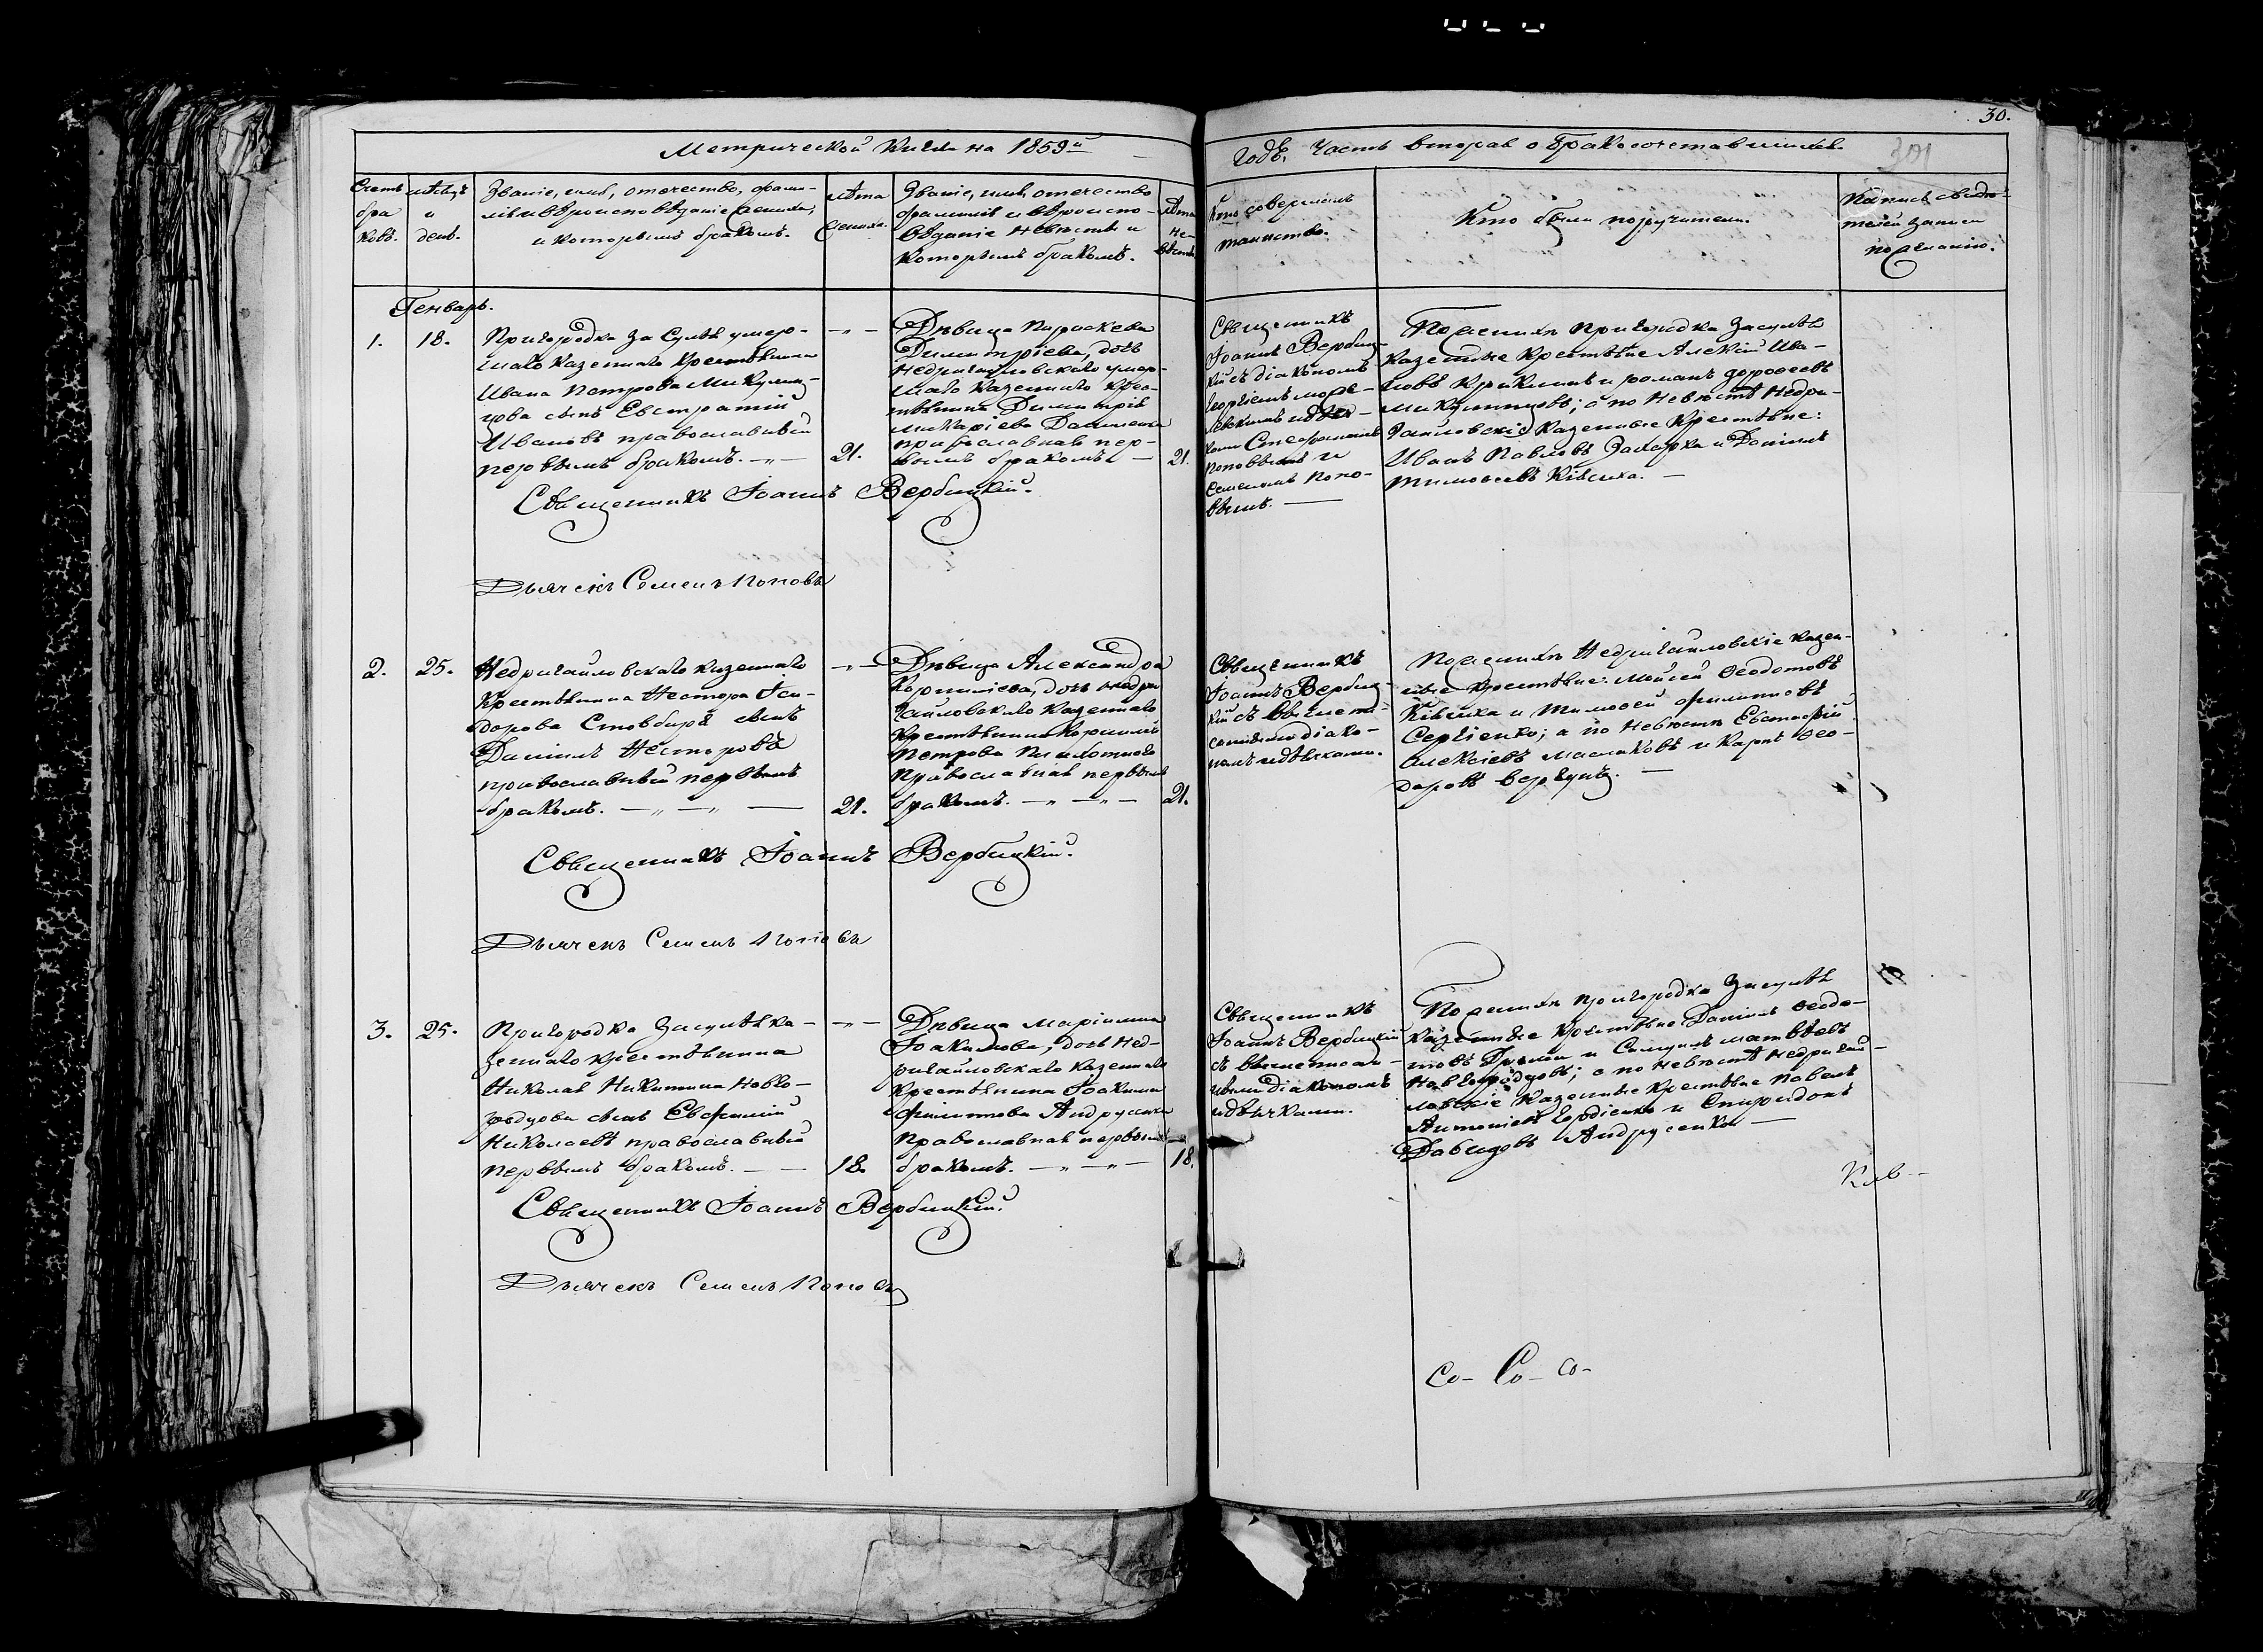 30.
Метрической книги на 1859й
годъ, Часть вторая о бракосочетавшихся.
301
Счетъ
бра
ковъ.
мѣсяцъ
и
день.
Званіе, имя, отечество, фами-
лія и вѣроисповѣданіе жениха,
и которымъ бракомъ.
лѣта
жениха.
Званіе, имя, отечество
фамилія и вѣроиспо-
вѣданіе невѣсты и
которымъ бракомъ.
лѣта
не-
вѣсты
Кто совершилъ
таинство.
Кто были поручители.
Подпись свидѣ-
телей записи
по желанію.
Генварь.
1.
18.
Пригородка Засулья умер-
шаго казеннаго крестьянина
Ивана Петрова Микулин-
цова сынъ Евстратій
Ивановъ православный
первымъ бракомъ.
21.
Дѣвица Параскева
Димитріева, дочь
недригайловскаго умер-
шаго казеннаго крес-
тьянина Димитрія
Макаріева
православная пер-
вымъ бракомъ
21.
Священникъ
Іоаннъ Вербиц-
кій съ діакономъ
Георгіемъ
Стефаномъ
Поповымъ и
Семеномъ Попо-
вымъ.
По женихѣ пригородка Засулья
казенные крестьяне Алексій Ива-
новъ и Романъ Дороѳеевъ
Микулинцовъ; а по невѣстѣ недри-
гайловскіе казенные крестьяне:
Иванъ Павловъ и Даніилъ
Тимоѳеевъ
Священникъ Іоаннъ Вербицкій.
Дьячекъ Семенъ Поповъ
2.
25.
Недригайловскаго казеннаго
крестьянина Нестора Іси-
дорова сынъ
Даніилъ Несторовъ
православный первымъ
бракомъ.
21.
Дѣвица Александра
Корниліева, дочь недри
гайловскаго казеннаго
крестьянина Корнилія
Петрова
православная первымъ
бракомъ.
21.
Священникъ
Іоаннъ Вербиц-
кій съ вышепи-
саннымъ діако-
номъ и дьячками.
По женихѣ недригайловскіе казен-
ные крестьяне: Моисей Ѳеодотовъ
и Тимоѳей Филипповъ
Сергіенко; а по невѣстѣ Евстафій
Алексіевъ Маслаковъ и Карпъ Ѳео-
доровъ
Священникъ Іоаннъ Вербицкій.
Дьячекъ Семенъ Поповъ
3.
25.
Пригородка Засулья ка-
зеннаго крестьянина
Николая Никитина Новго-
родцова сынъ Евфимій
Николаевъ православный
первымъ бракомъ.
18.
Дѣвица Маріанна
Іоакимова, дочь нед-
ригайловскаго казеннаго
крестьянина Іоакима
Филиппова Андрусенка
православная первымъ
бракомъ.
18.
Священникъ
Іоаннъ Вербицкій
съ вышеписан-
нымъ діакономъ
и дьячками.
По женихѣ пригородка Засулья
казенные крестьяне Даніилъ Ѳеодо-
товъ и Самуилъ Матвѣевъ
Новгородцовъ; а по невѣстѣ недригай-
ловскіе казенные крестьяне Павелъ
Антоніевъ Гордіенко и Спиридонъ
Давидовъ Андрусенко
Священникъ Іоаннъ Вербицкій.
Дьячекъ Семенъ Поповъ
Со- Со- со-